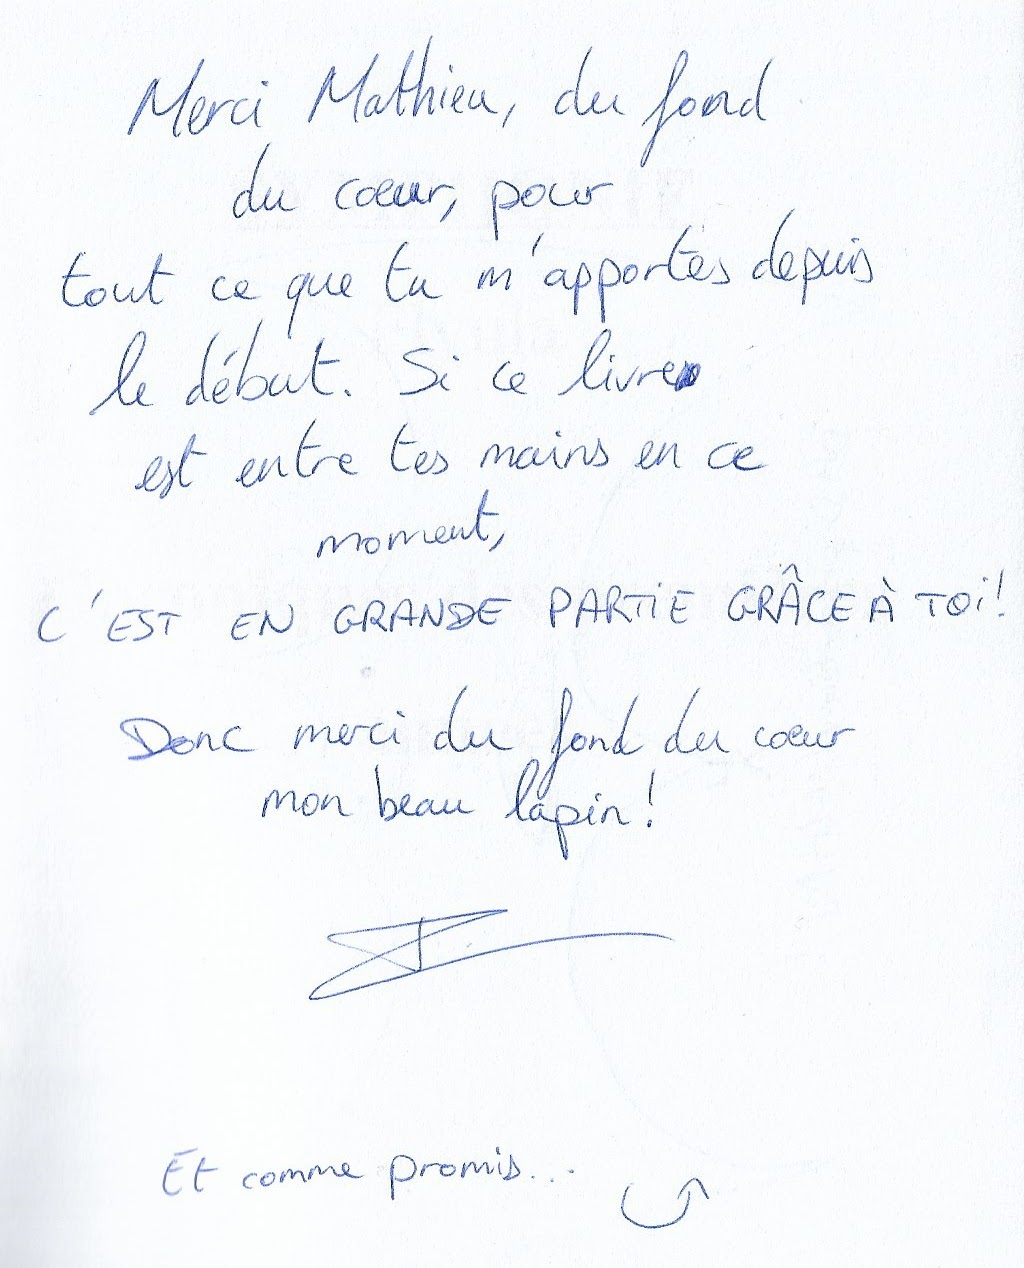 Merci Mathieu, du fond
du cœur, pour
tout ce que tu m'apportes depuis
le début. Si ce livre
est entre tes mains en ce
moment,
C'EST EN GRANDE PARTIE GRÂCE À TOI!
Donc merci du fond du cœur
mon beau lapin!
Et comme promis...